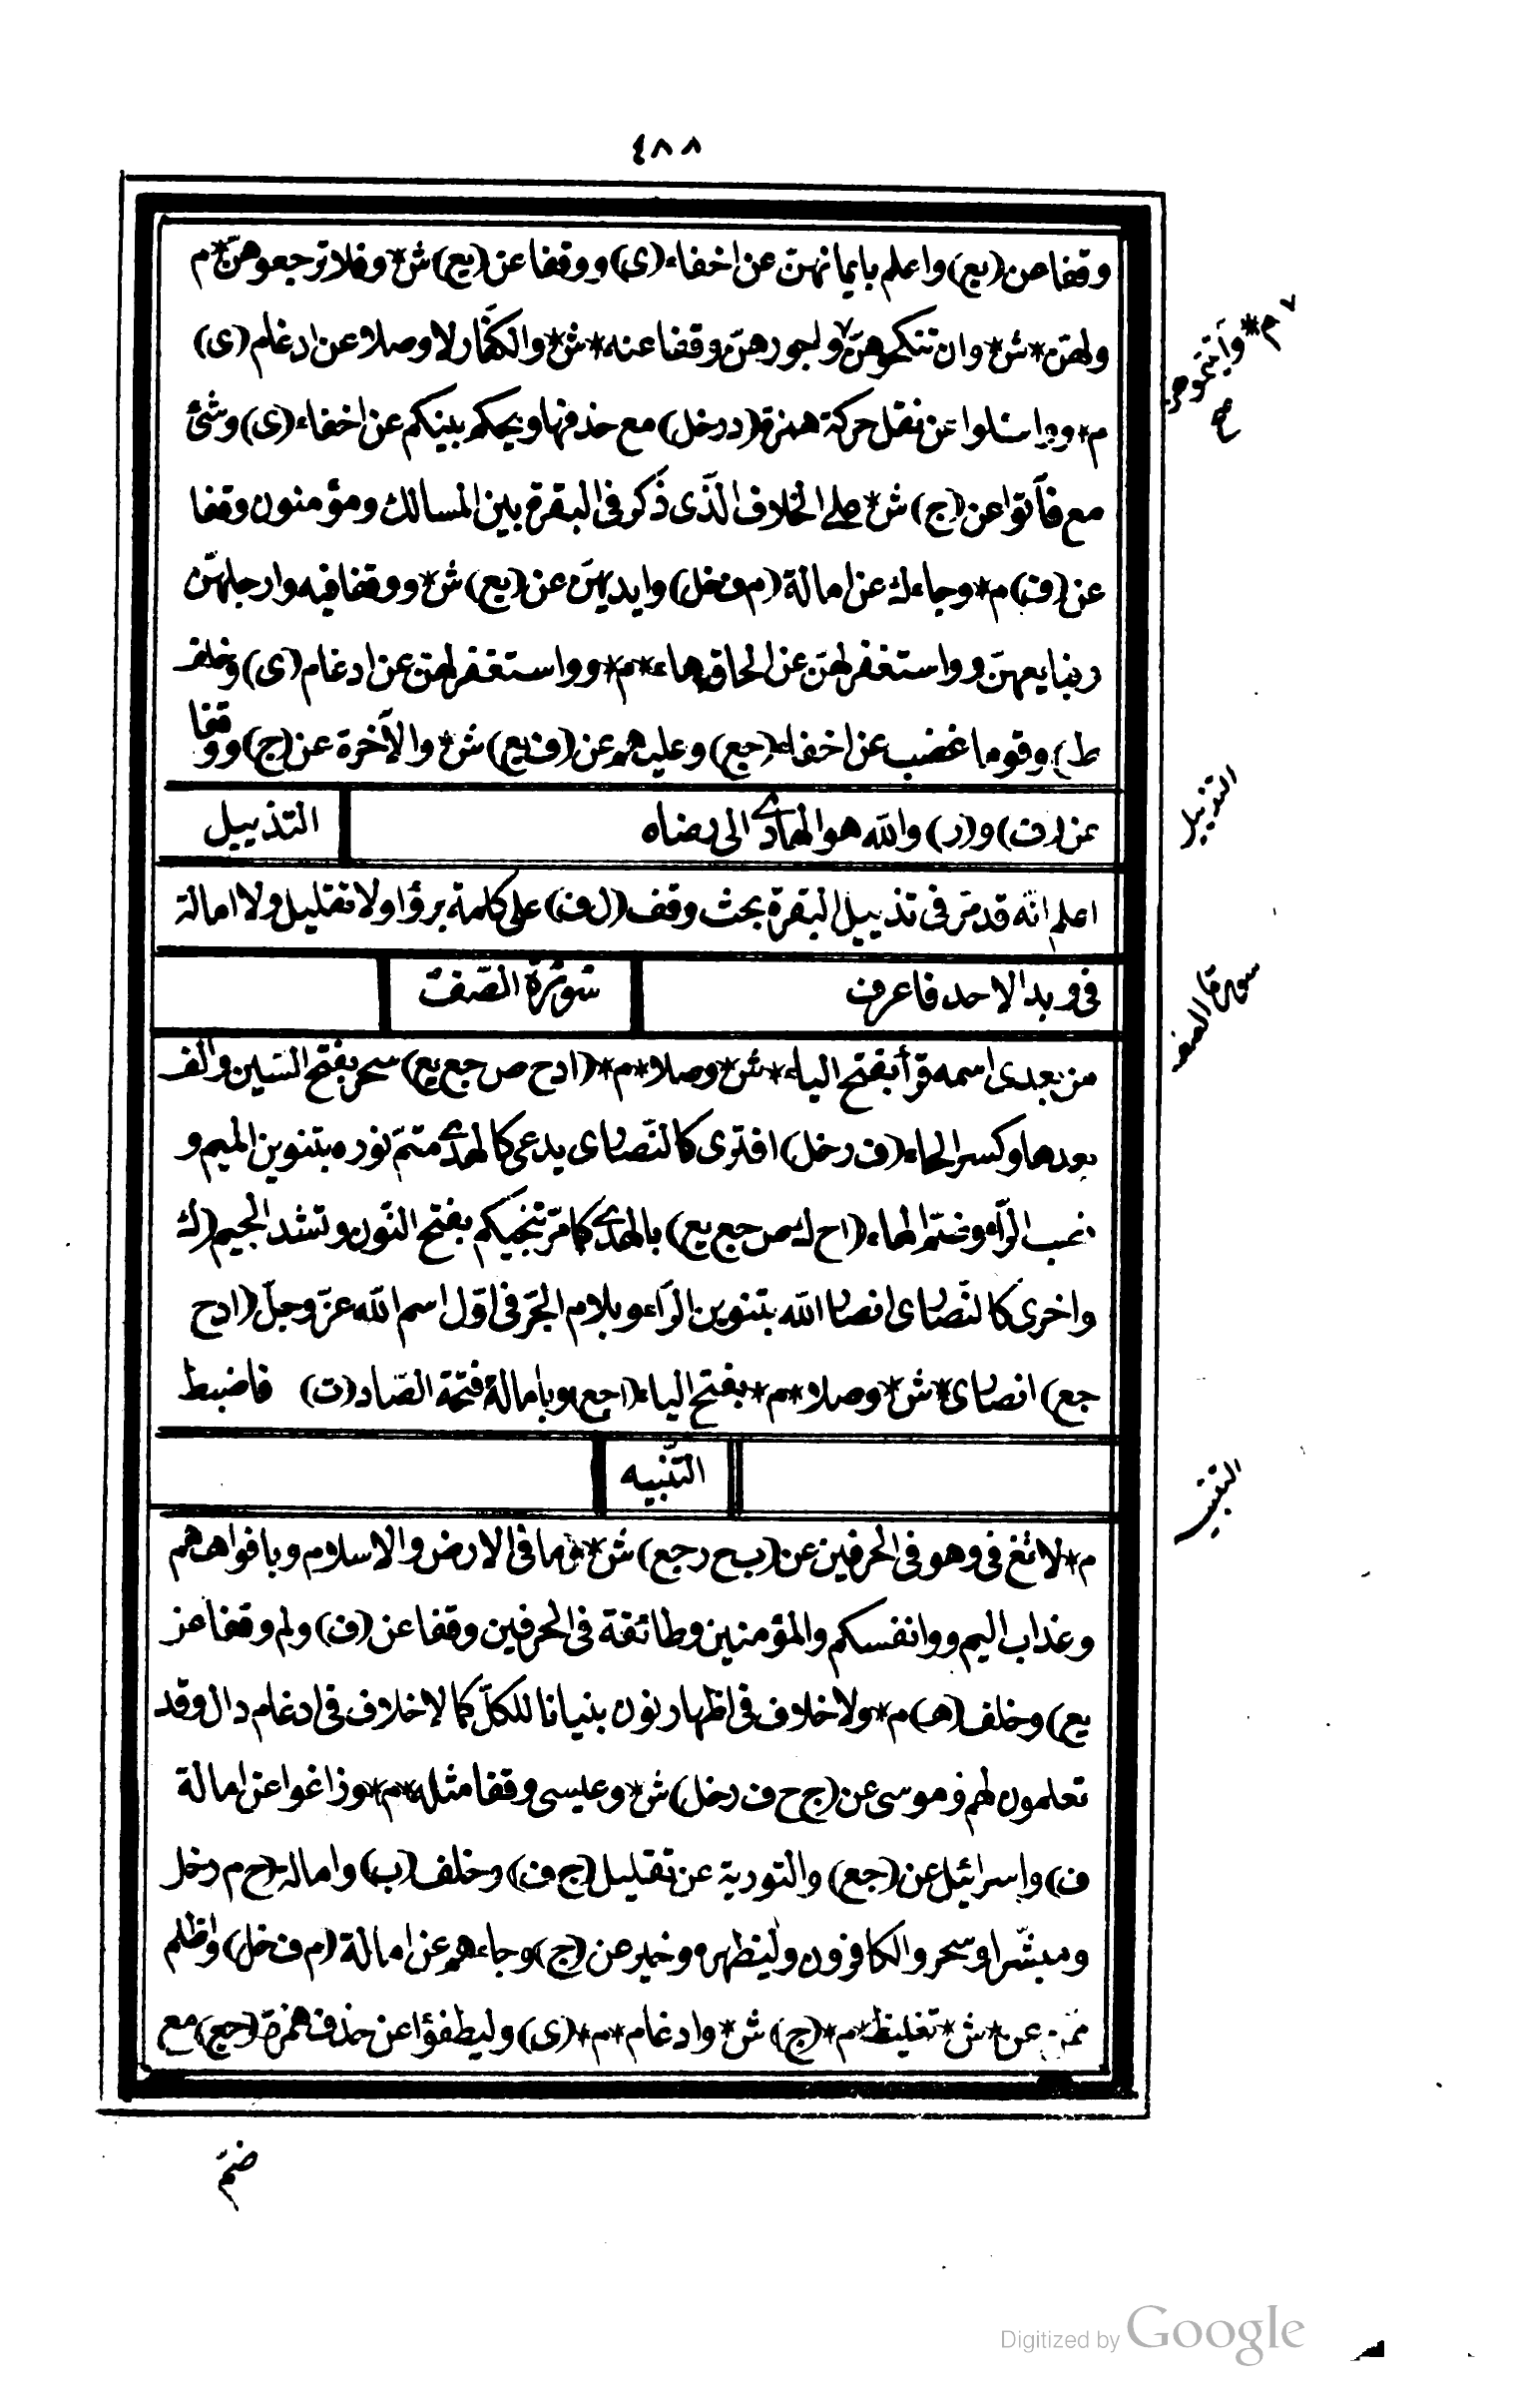 ٤٨٨
وقفا عن (يع) واعلم بايمانهنّ عن اخفاء (ى) ووقفا عن (يع) ش* وفلا ترجعوهنّ* م
ولهنّ م* ش* وان تنكحوهنّ ولجورهنّ وقفا عنه* ش* والكفّار لا وصلا عن ادغام (ى)
م* وواسئلوا عن نقل حركة همزة (د دخل) مع حذفها ويحكم بينكم عن اخفاء (ى) وشئ
مع فآتوا عن (ج) ش* على الخلاف الّذى ذكر فى البقرة بين المسالك ومؤمنون وقفا
عن (ف) م* وجاءك عن امالة (م ف خل) وايديهنّ عن (يع) ش* ووقفا فيه وارجلهنّ
وفبايعهنّ وواستغفر لهنّ عن الحاق هاء* م* وواستغفر لهنّ عن ادغام (ى) وخلف
ط) وقوما غضب عن اخفاء (جع) وعليهم عن (ف يع) ش* والآخرة عن (ج) ووقفا
عن (ف) و (ر) والله هو الهادى الى رضاه
التذييل
اعلم انّه قد مرّ فى تذييل البقرة بحث وقف (ل ف) على كلمة برؤا ولا تقليل ولا امالة
فى وبدا لاحد فاعرف
سورة الصّفّ
من بعدى اسمه قرأ بفتح الياء* ش* وصلا* م* (ا د ح ص جع يع) سحر بفتح السّين والف
بعدها وكسر الحاء (ف ر خل) افترى كالنّصارى يدعى كالهدى متمّ نوره بتنوين الميم و
نصب الرّاء وضمّ الهاء (ا ح ك ص جع يع) بالهدى كما مرّ تنجيكم بفتح النّون وتشد الجيم (ك
واخرى كالنّصارى انصارا الله بتنوين الرّاء وبلام الجرّ فى اوّل اسم الله عزّ وجلّ (ا د ح
جع) انصارى* ش* وصلا* م* بفتح الياء (ا جع) وبامالة فتحة الصّاد (ت) فاضبط
التّنبيه
م* لا تغ فى وهو فى الحرفين عن (ب ح ر جع) ش* وما فى الارض والاسلام وبافواههم
وعذاب اليم ووانفسكم والمؤمنين وطائفة فى الحرفين وقفا عن (ف) ولم وقفا عن
يع) وخلف (هـ) م* ولا خلاف فى اظهار نون بنيانا للكلّ كما لا خلاف فى ادغام دال وقد
تعلمون لهم وموسى عن (ج ح ف ر خل) ش* وعيسى وقفا مثله* م* وزاغوا عن امالة
ف) واسرائيل عن (جع) والتورية عن تقليل (ج ف) وخلف (ب) وامالة (ح م ر خل
ومبشّرا وسحر والكافرون وليظهره وخير عن (ج) وجاءهم عن امالة (م ف خل) واظلم
ممّن عن* ش* تغليظ* م* (ج) ش* وادغام* م* (ى) وليطفؤا عن حذف همزة (جع) مع
ضمّ
م* وآتيتموهنّ
صح
التذييل
سورة الصف
التنبيه
Digitized by Google